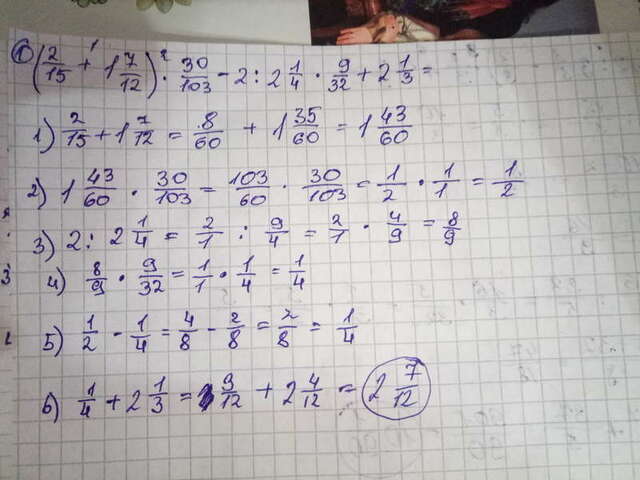 ① (2/15 + 1 7/12) · 30/103 - 2 : 2 1/4 · 9/32 + 2 1/3 =
1) 2/15 + 1 7/12 = 8/60 + 1 35/60 = 1 43/60
2) 1 43/60 · 30/103 = 103/60 · 30/103 = 1/2 · 1/1 = 1/2
3) 2 : 2 1/4 = 2/1 : 9/4 = 2/1 · 4/9 = 8/9
4) 8/9 · 9/32 = 1/1 · 1/4 = 1/4
5) 1/2 - 1/4 = 4/8 - 2/8 = 2/8 = 1/4
6) 1/4 + 2 1/3 = 9/12 + 2 4/12 = 2 7/12